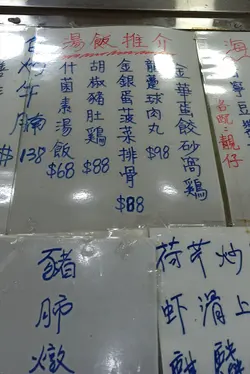 湯飯推介
金華蛋餃砂窩鷄
龍躉球肉丸
$98
金銀蛋菠菜排骨
$88
胡椒豬肚鷄
$88
什菌素湯飯
$68
牛腩
138
海
靚仔
豬肺燉
荷芹炒
虾滑上